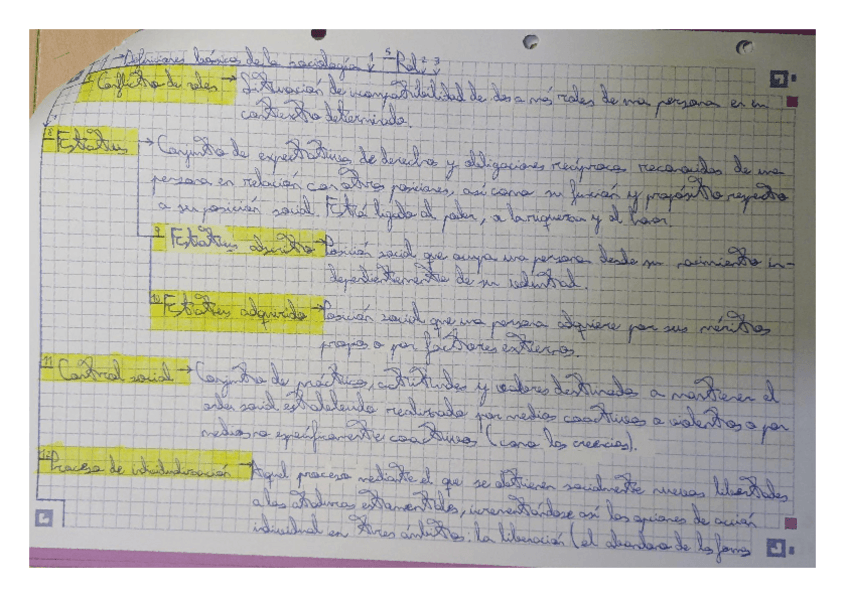 → Definiciones básicas de la sociología 1 5 Rol 2 3
Conflicto de roles → Situación de incompatibilidad de dos o más roles de una persona en un
contexto determinado.
8 Estatus → Conjunto de expectativas de derechos y obligaciones recíprocas reconocidas de una
persona en relación con otras posiciones, así como su función y propósito respecto
a su posición social. Está ligado al poder, a la riqueza y al honor.
9 Estatus adscrito → Posición social que ocupa una persona desde su nacimiento in-
dependientemente de su voluntad.
10 Estatus adquirido → Posición social que una persona adquiere por sus méritos
propios o por factores externos.
11 Control social → Conjunto de prácticas, actitudes y valores destinados a mantener el
orden social establecido realizado por medios coactivos o violentos o por
medios no específicamente coactivos (como las creencias).
12 Proceso de individualización → Aquel proceso mediante el que se obtienen socialmente nuevas libertades
a las ataduras estamentales, incrementándose así las opciones de acción
individual en tres ámbitos: la liberación (el abandono de las formas